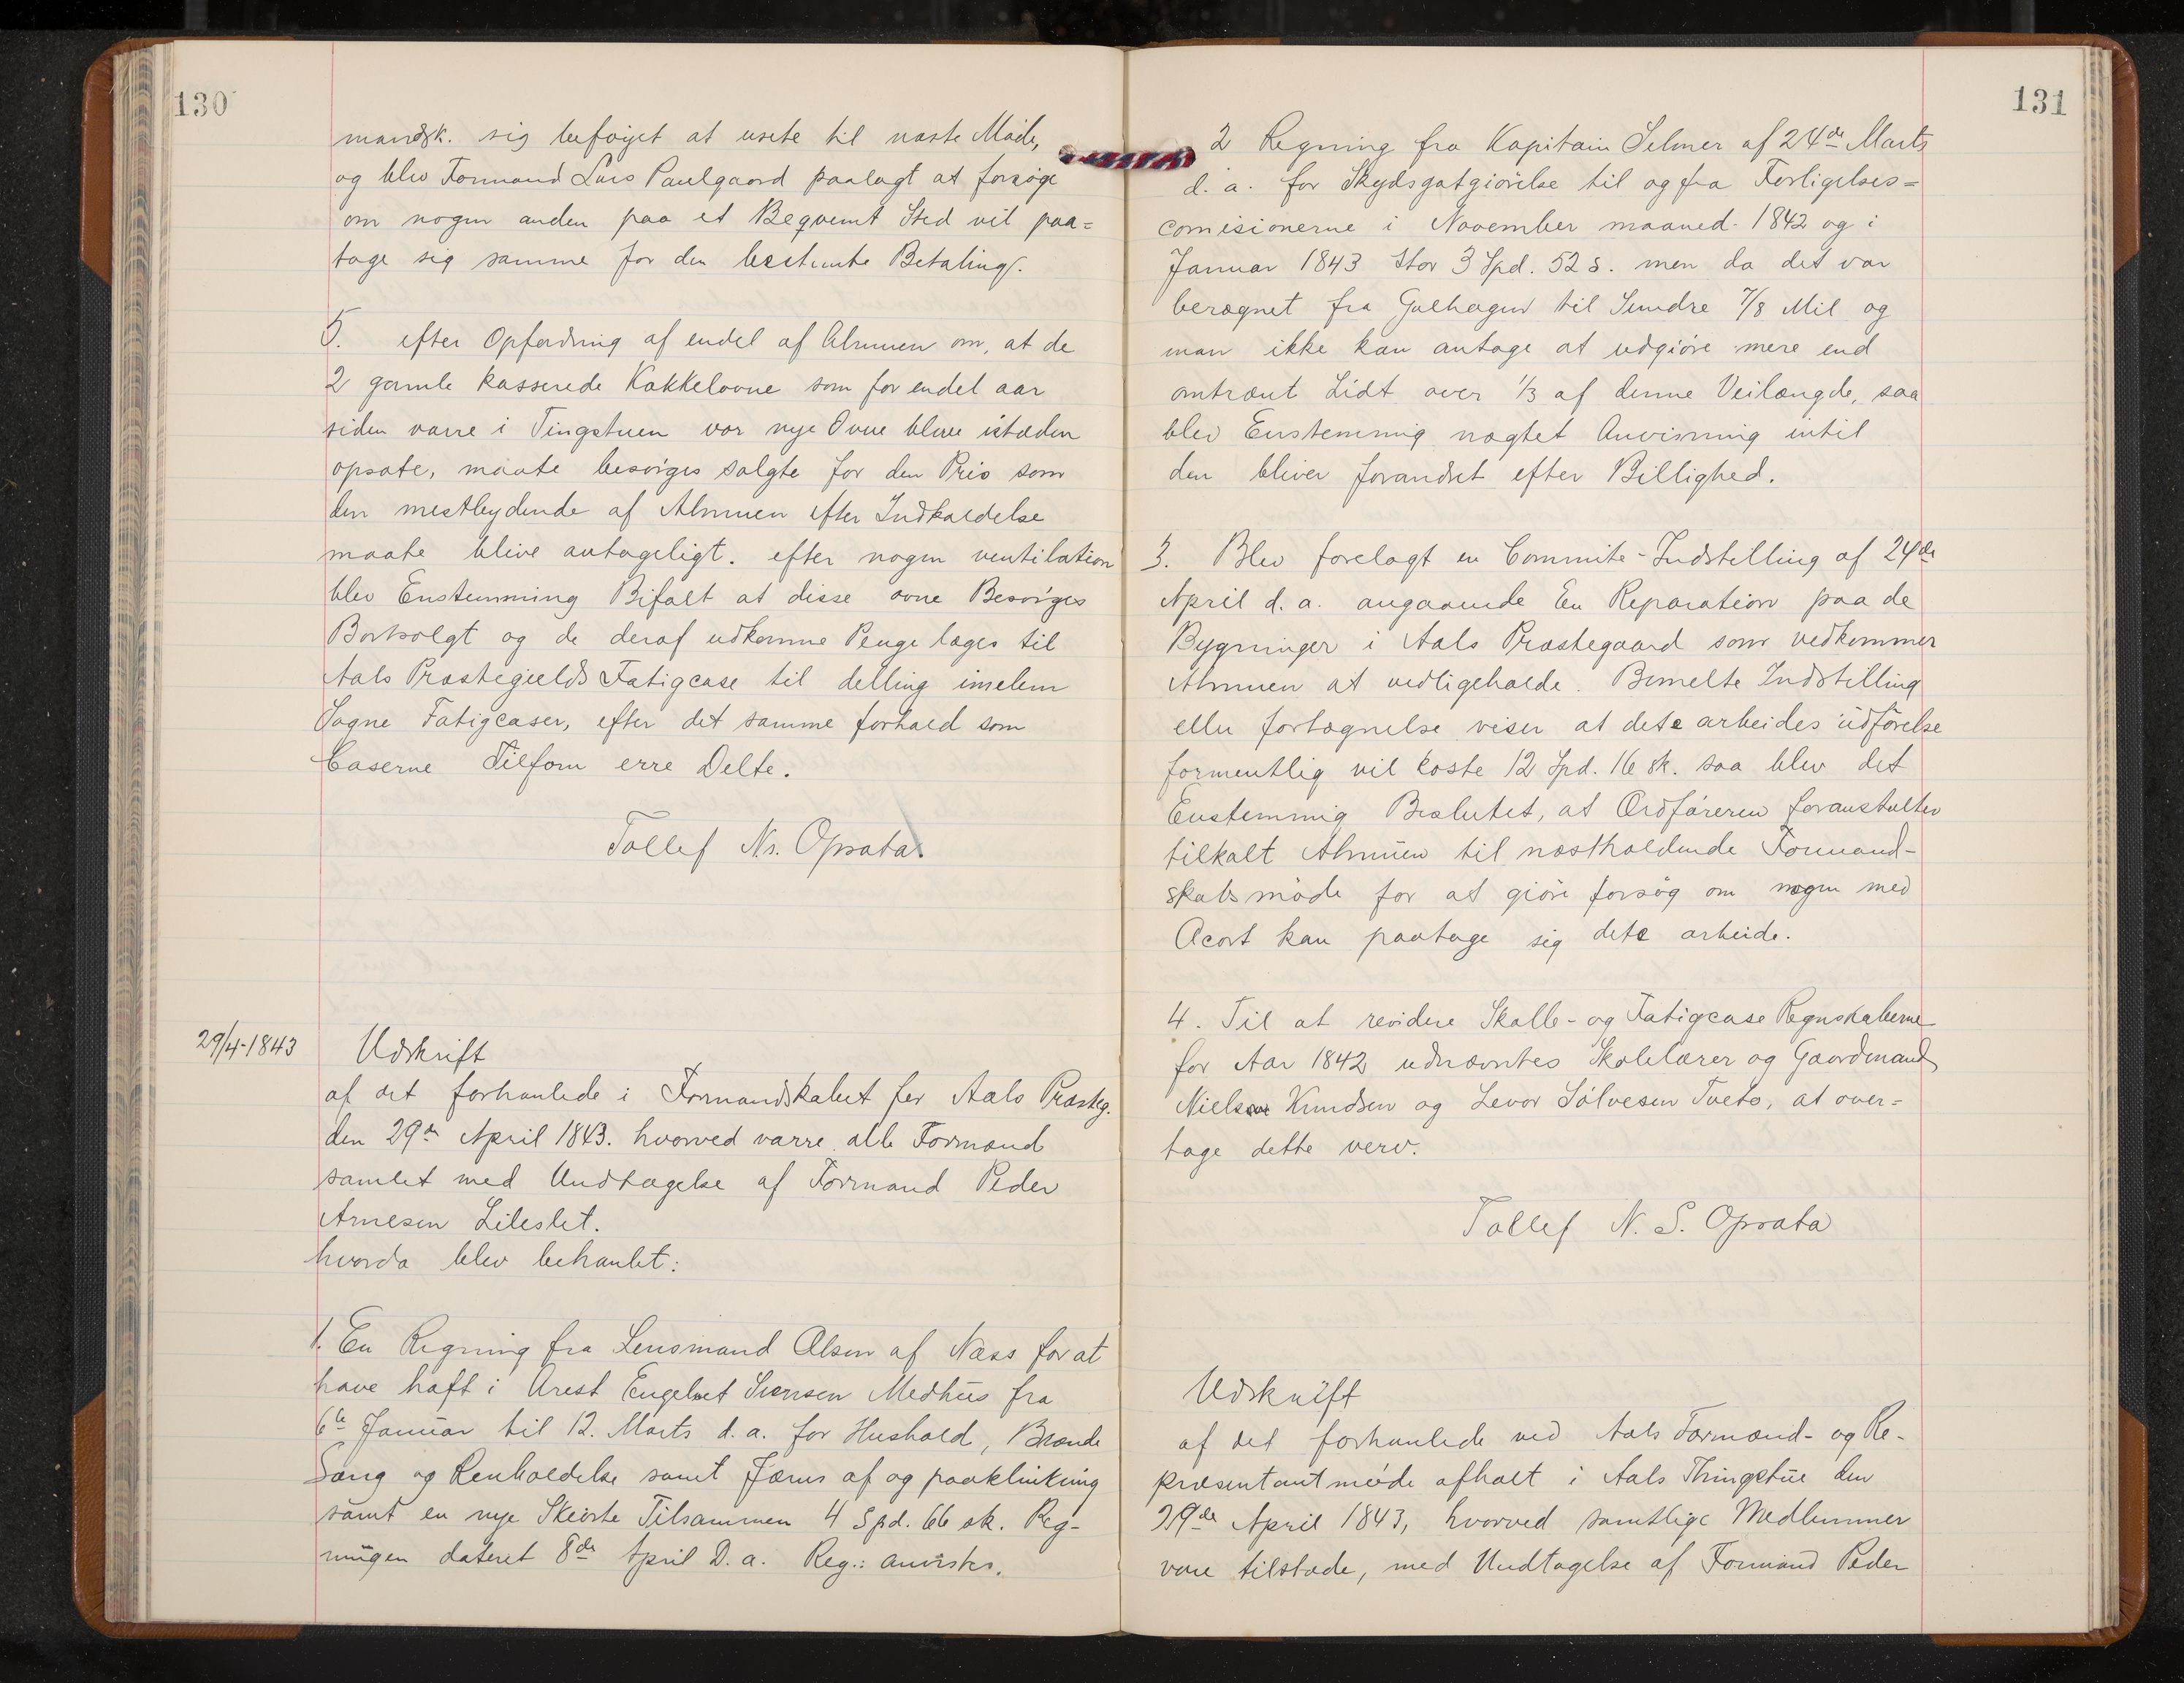 130
mandsk. sig beføiget at usete til næste Møde,
og blev Formand Lars Paulgaard paalagt at forsøge
om nogen anden paa et Beqvemt Sted vil paa=
tage sig samme for den bestemte Betaling.
5. efter Opfordring af endel af Almuen om, at de
2 gamle kasserede Kakkelovne som for endel aar
siden varre i Tingstuen vor nye Ovne bleve istæden
opsate, maate besørges solgte for den Pris som
den mestbydende af Almuen efter Indkaldelse
maate blive antageligt. efter nogen ventilation
blev Enstemming Bifalt at disse ovne Besørges
Bortsolgt og de deraf udkomne Penge læges til
Aals Præstegields Fatigcase til delling imelem
Sogne Fatigcaser, efter det samme forhold som
Caserne Tilforn erre Delte.
Tollef Ns. Opsata.
29/4-1843
Udskrift
af det forhanlede i Formandskabet for Aals Præsteg.
den 29de April 1843. hvorved varre alle Formænd
samlet med Undtagelse af Formand Peder
Arnesen Lileslet.
hvorda blev behanlet:
1. En Regning fra Lensmand Olsen af Næss for at
have haft i Arest Engebret Svensen Medhus fra
6te Januar til 12. Marts d. a. for Hushold, Brænde
Sæng og Renholdelse samt Jærns af og paaklinkning
samt en nye Skiorte Tilsammen 4 Spd. 66 sk. Reg-
ningen dateret 8de April D. a. Reg.: anvistes.
131
2 Regning fra Kapitain Selmer af 24de Marts
d. a. for Skydsgatgiørelse til og fra Forligelses=
comisionerne i November maaned 1842 og i
Januar 1843 stor 3 Spd. 52 s. men da det var
beregnet fra Gulhagen til Sundre 7/8 Mil og
man ikke kan antage at udgiøre mere end
omtrænt Lidt over 1/3 af denne Veilængde, saa
blev Enstemmig nægtet Anvisning intil
den bliver forandret efter Billighed.
3. Blev forelagt en Commite-Indstelling af 24de
April d. a. angaaende En Reparation paa de
Bygninger i Aals Præstegaard som vedkommer
Almuen at vedligeholde. Bemelte Indstilling
eller fortægnelse viser at dete arbeides udførelse
formentlig vil koste 12 Spd. 16 sk. saa blev det
Enstemmig Beslutet, at Ordføreren foranstalter
tilkalt Almuen til næstholdende Formand-
skabsmøde for at giøre forsøg om nogen med
Acort kan paatage sig dete arbeide.
4. Til at revidere Skolle- og Fatigcase Regnskaberne
for Aar 1842 udnævntes Skolelærer og Gaardmand
Niels Knudsen og Levor Sølvesen Tveto, at over=
tage dette verv.
Tollef N. S. Opsata
Udskrift
af det forhanlede ved Aals Formænd- og Re-
præsentantmøde afholt i Aals Thingstue den
29de April 1843, hvorved samtlige Medlemmer
vare tilstæde, med Undtagelse af Formand Peder